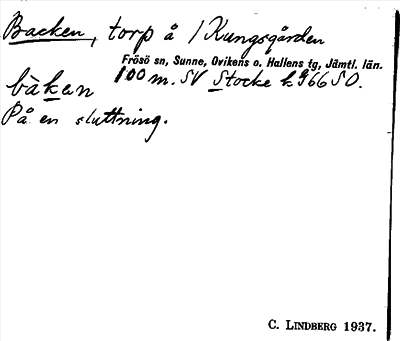 Backen, torp å /Kungsgården
Frösö sn, Sunne, Ovikens o. Hallens tg, Jämtl. län.
bàken 100 m. SV Stocke k 966 SO.
På en sluttning.
C. LINDBERG 1937.